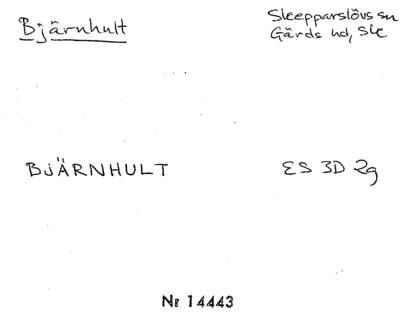 Bjärnhult
Sleepparslövs sn
Gärds hd, Sk
BJÄRNHULT
ES 3D 2g
Nr 14443